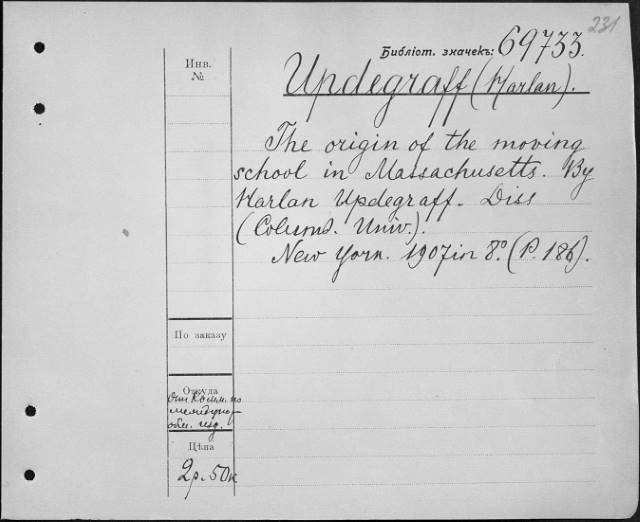 231
Библіот. значекъ: 69733.
Инв.
№
Updegraff (Harlan).
The origin of the moving
school in Massachusetts. By
Harlan Updegraff. Diss
(Columb. Univ.).
New York. 1907 in 8º. (P. 186).
По заказу
Откуда
от Комм. по
междунар.
обм. изд.
Цѣна
2р. 50к